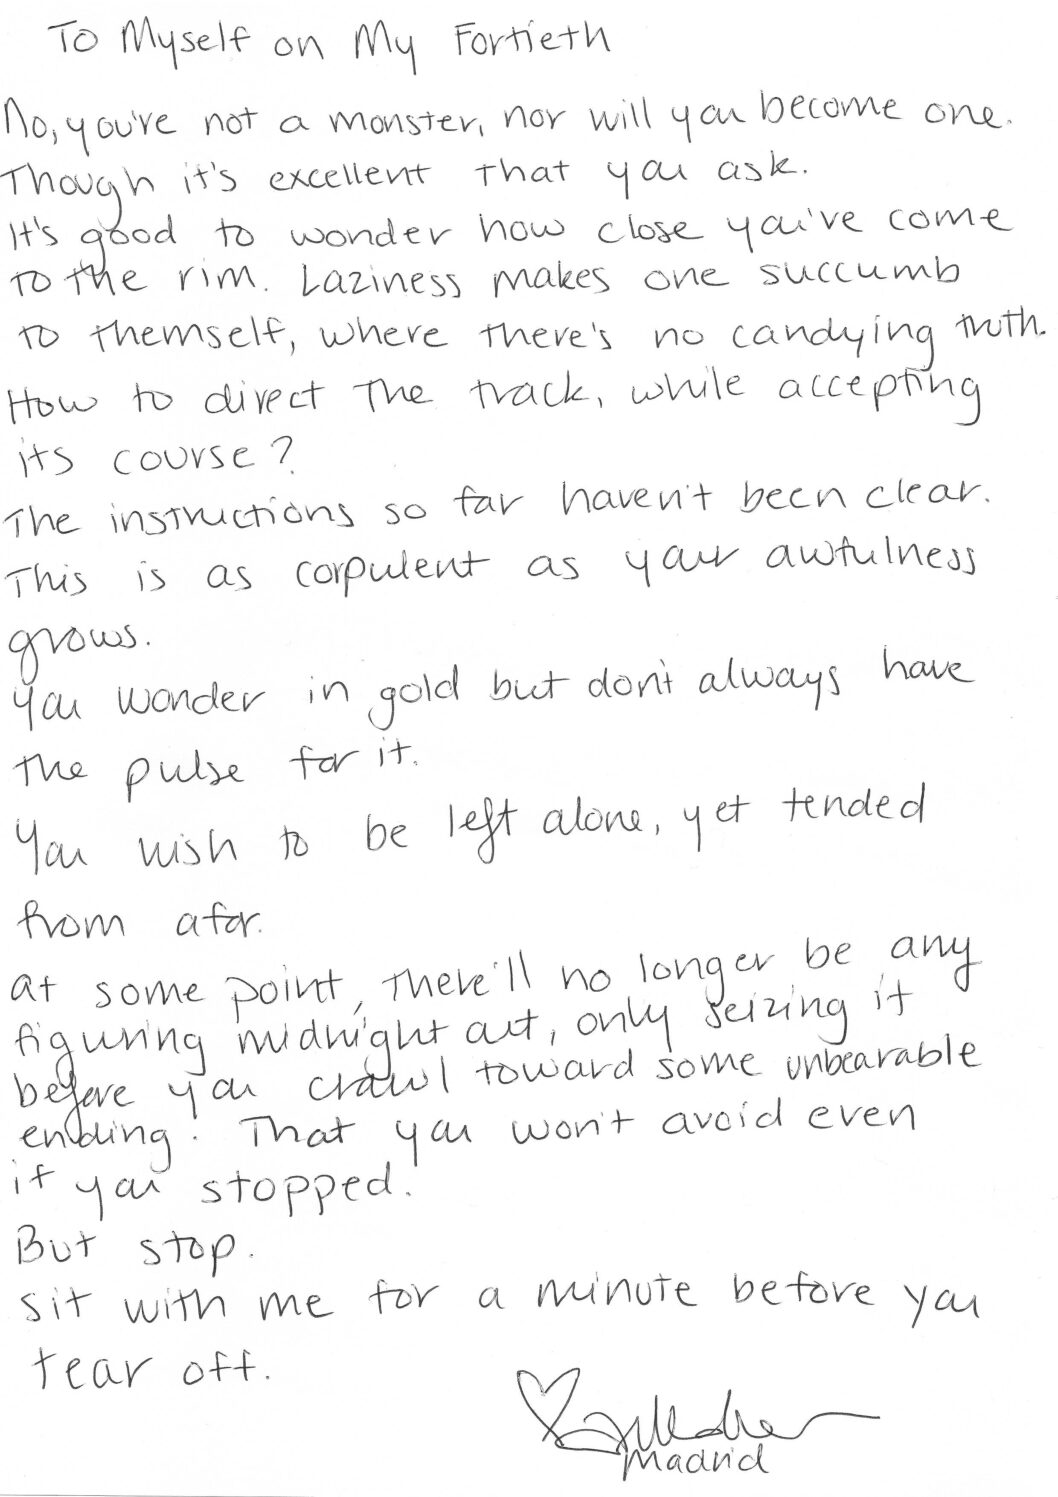 To Myself on My Fortieth
No, you're not a monster, nor will you become one.
Though it's excellent that you ask.
It's good to wonder how close you've come
to the rim. Laziness makes one succumb
to themself, where there's no candying truth.
How to direct the track, while accepting
its course?
The instructions so far haven't been clear.
This is as corpulent as your awfulness
grows.
you wonder in gold but don't always have
the pulse for it.
You wish to be left alone, yet tended
from afar.
at some point, there'll no longer be any
figuring midnight out, only seizing it
before you crawl toward some unbearable
ending. That you won't avoid even
if you stopped.
But stop.
sit with me for a minute before you
tear off.
Madrid